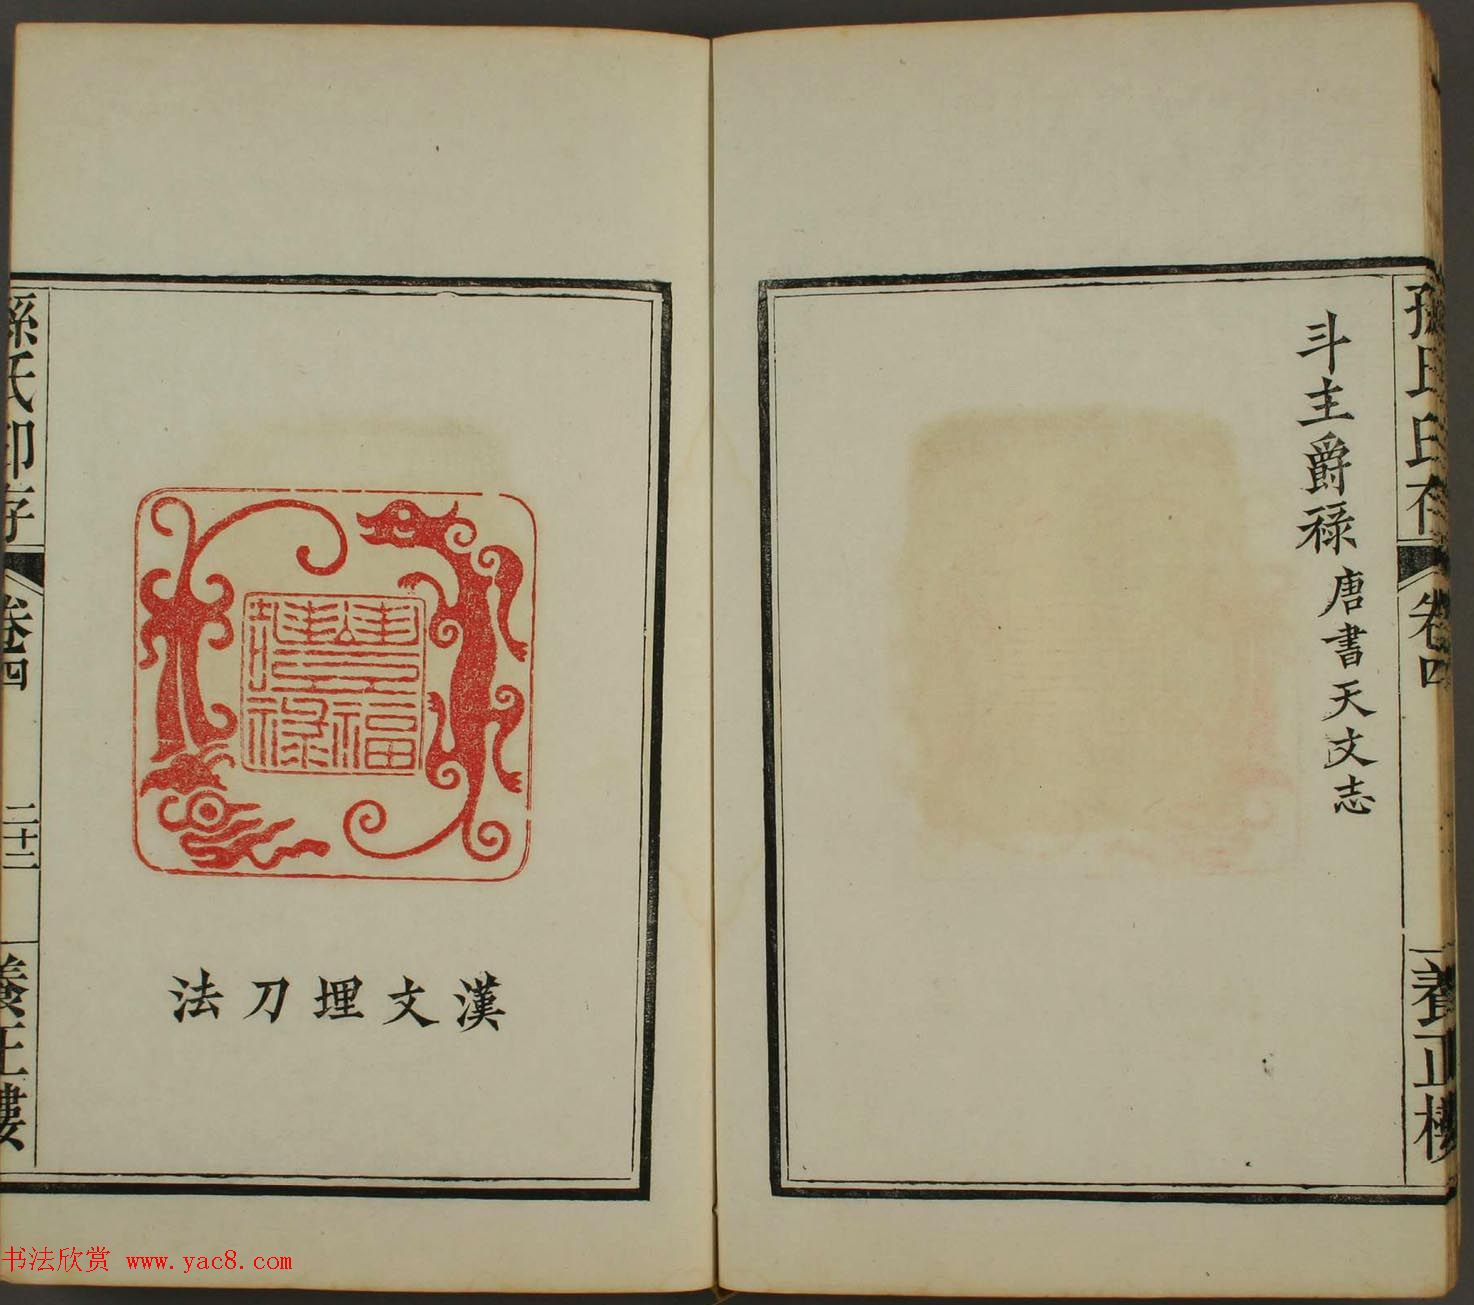 孫氏印存
卷四
養正樓
斗主爵禄 唐書天文志
福
禄
漢文埋刀法
孫氏印存
卷四
二十二
養正樓
书法欣赏 www.yac8.com